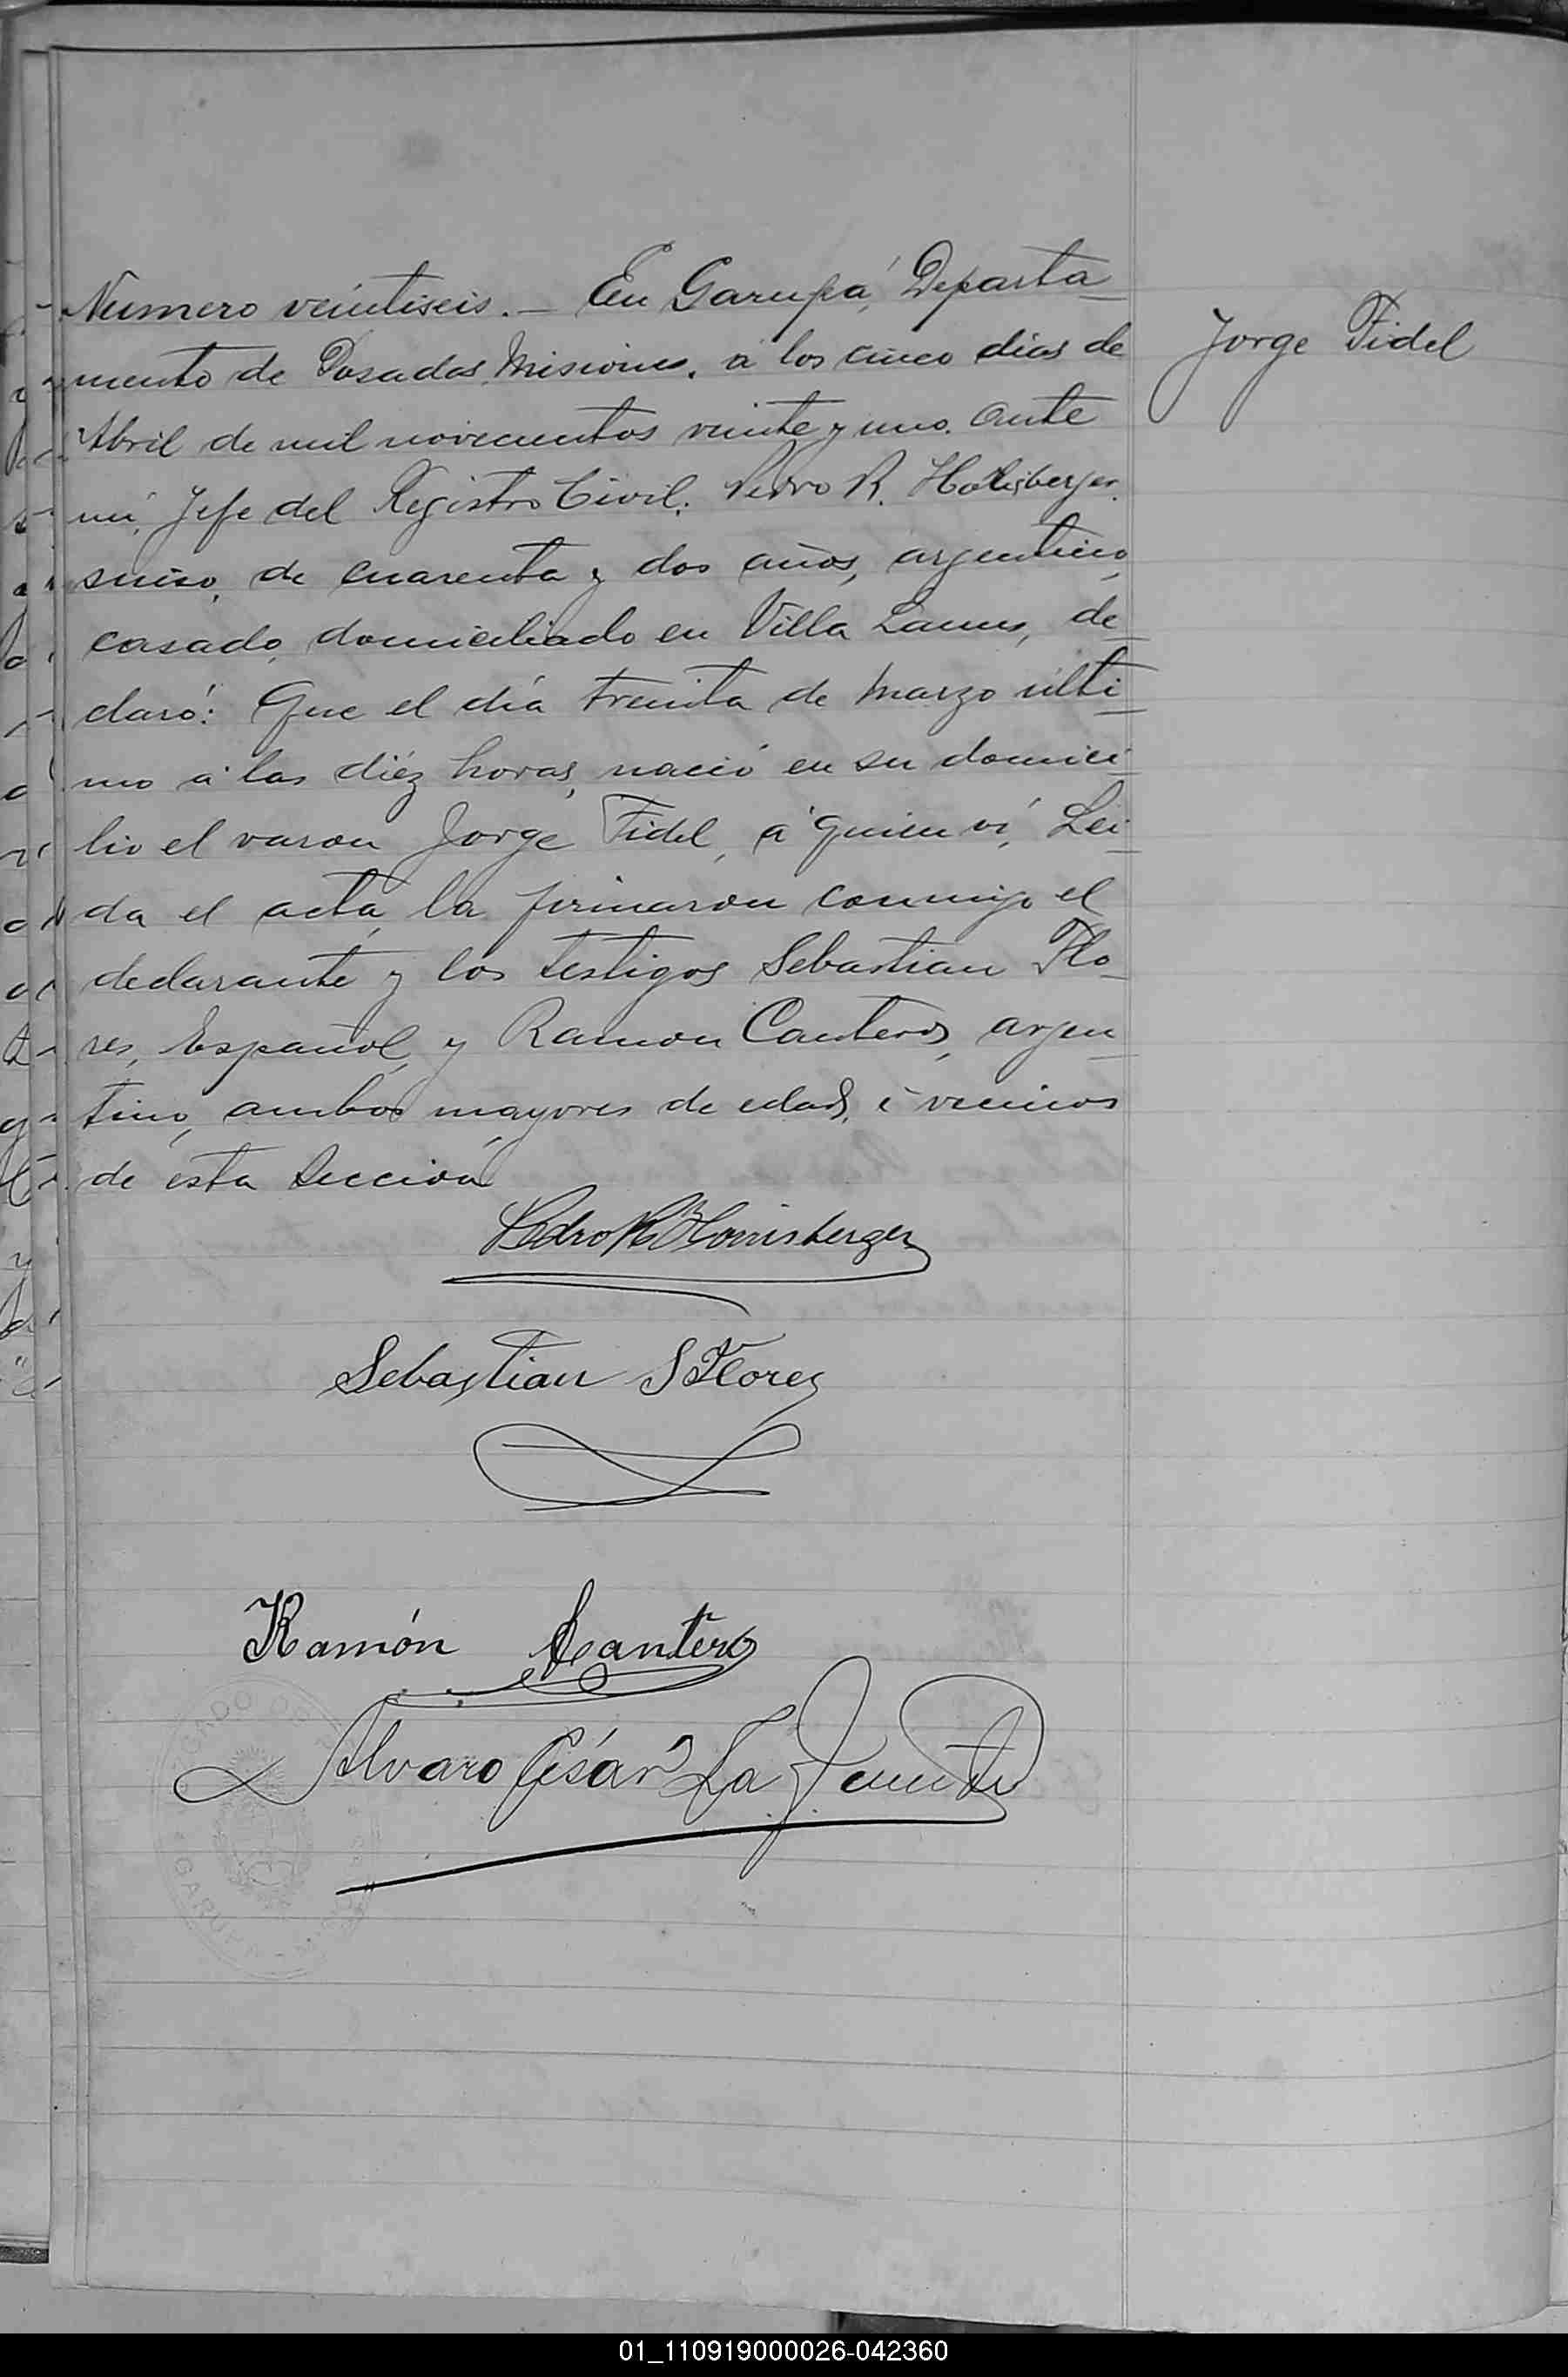 Numero veintiseis. — En Garupá, Departa
mento de Posadas, Misiones, a los cinco dias de
Abril de mil novecientos veinte y uno. Ante
mi, Jefe del Registro Civil: Pedro R.
suiso, de cuarenta y dos años, argentino,
casado, domiciliado en Villa Lanus, de
claró: Que el día treinta de Marzo ulti
mo á las diéz horas, nació en su domici
lio el varon Jorge Fidel, á quien ví, Lei
da el acta, la firmaron conmigo el
declarante y los testigos Sebastian Flo
res, Español, y Ramon Canteros, argen
tino, ambos mayores de edad, é vecinos
de esta Sección
Jorge Fidel
Pedro R Honisberger
Sebastian S Flores
Ramón Cantero
Alvaro César La Fuente
GARUPA
01_110919000026-042360